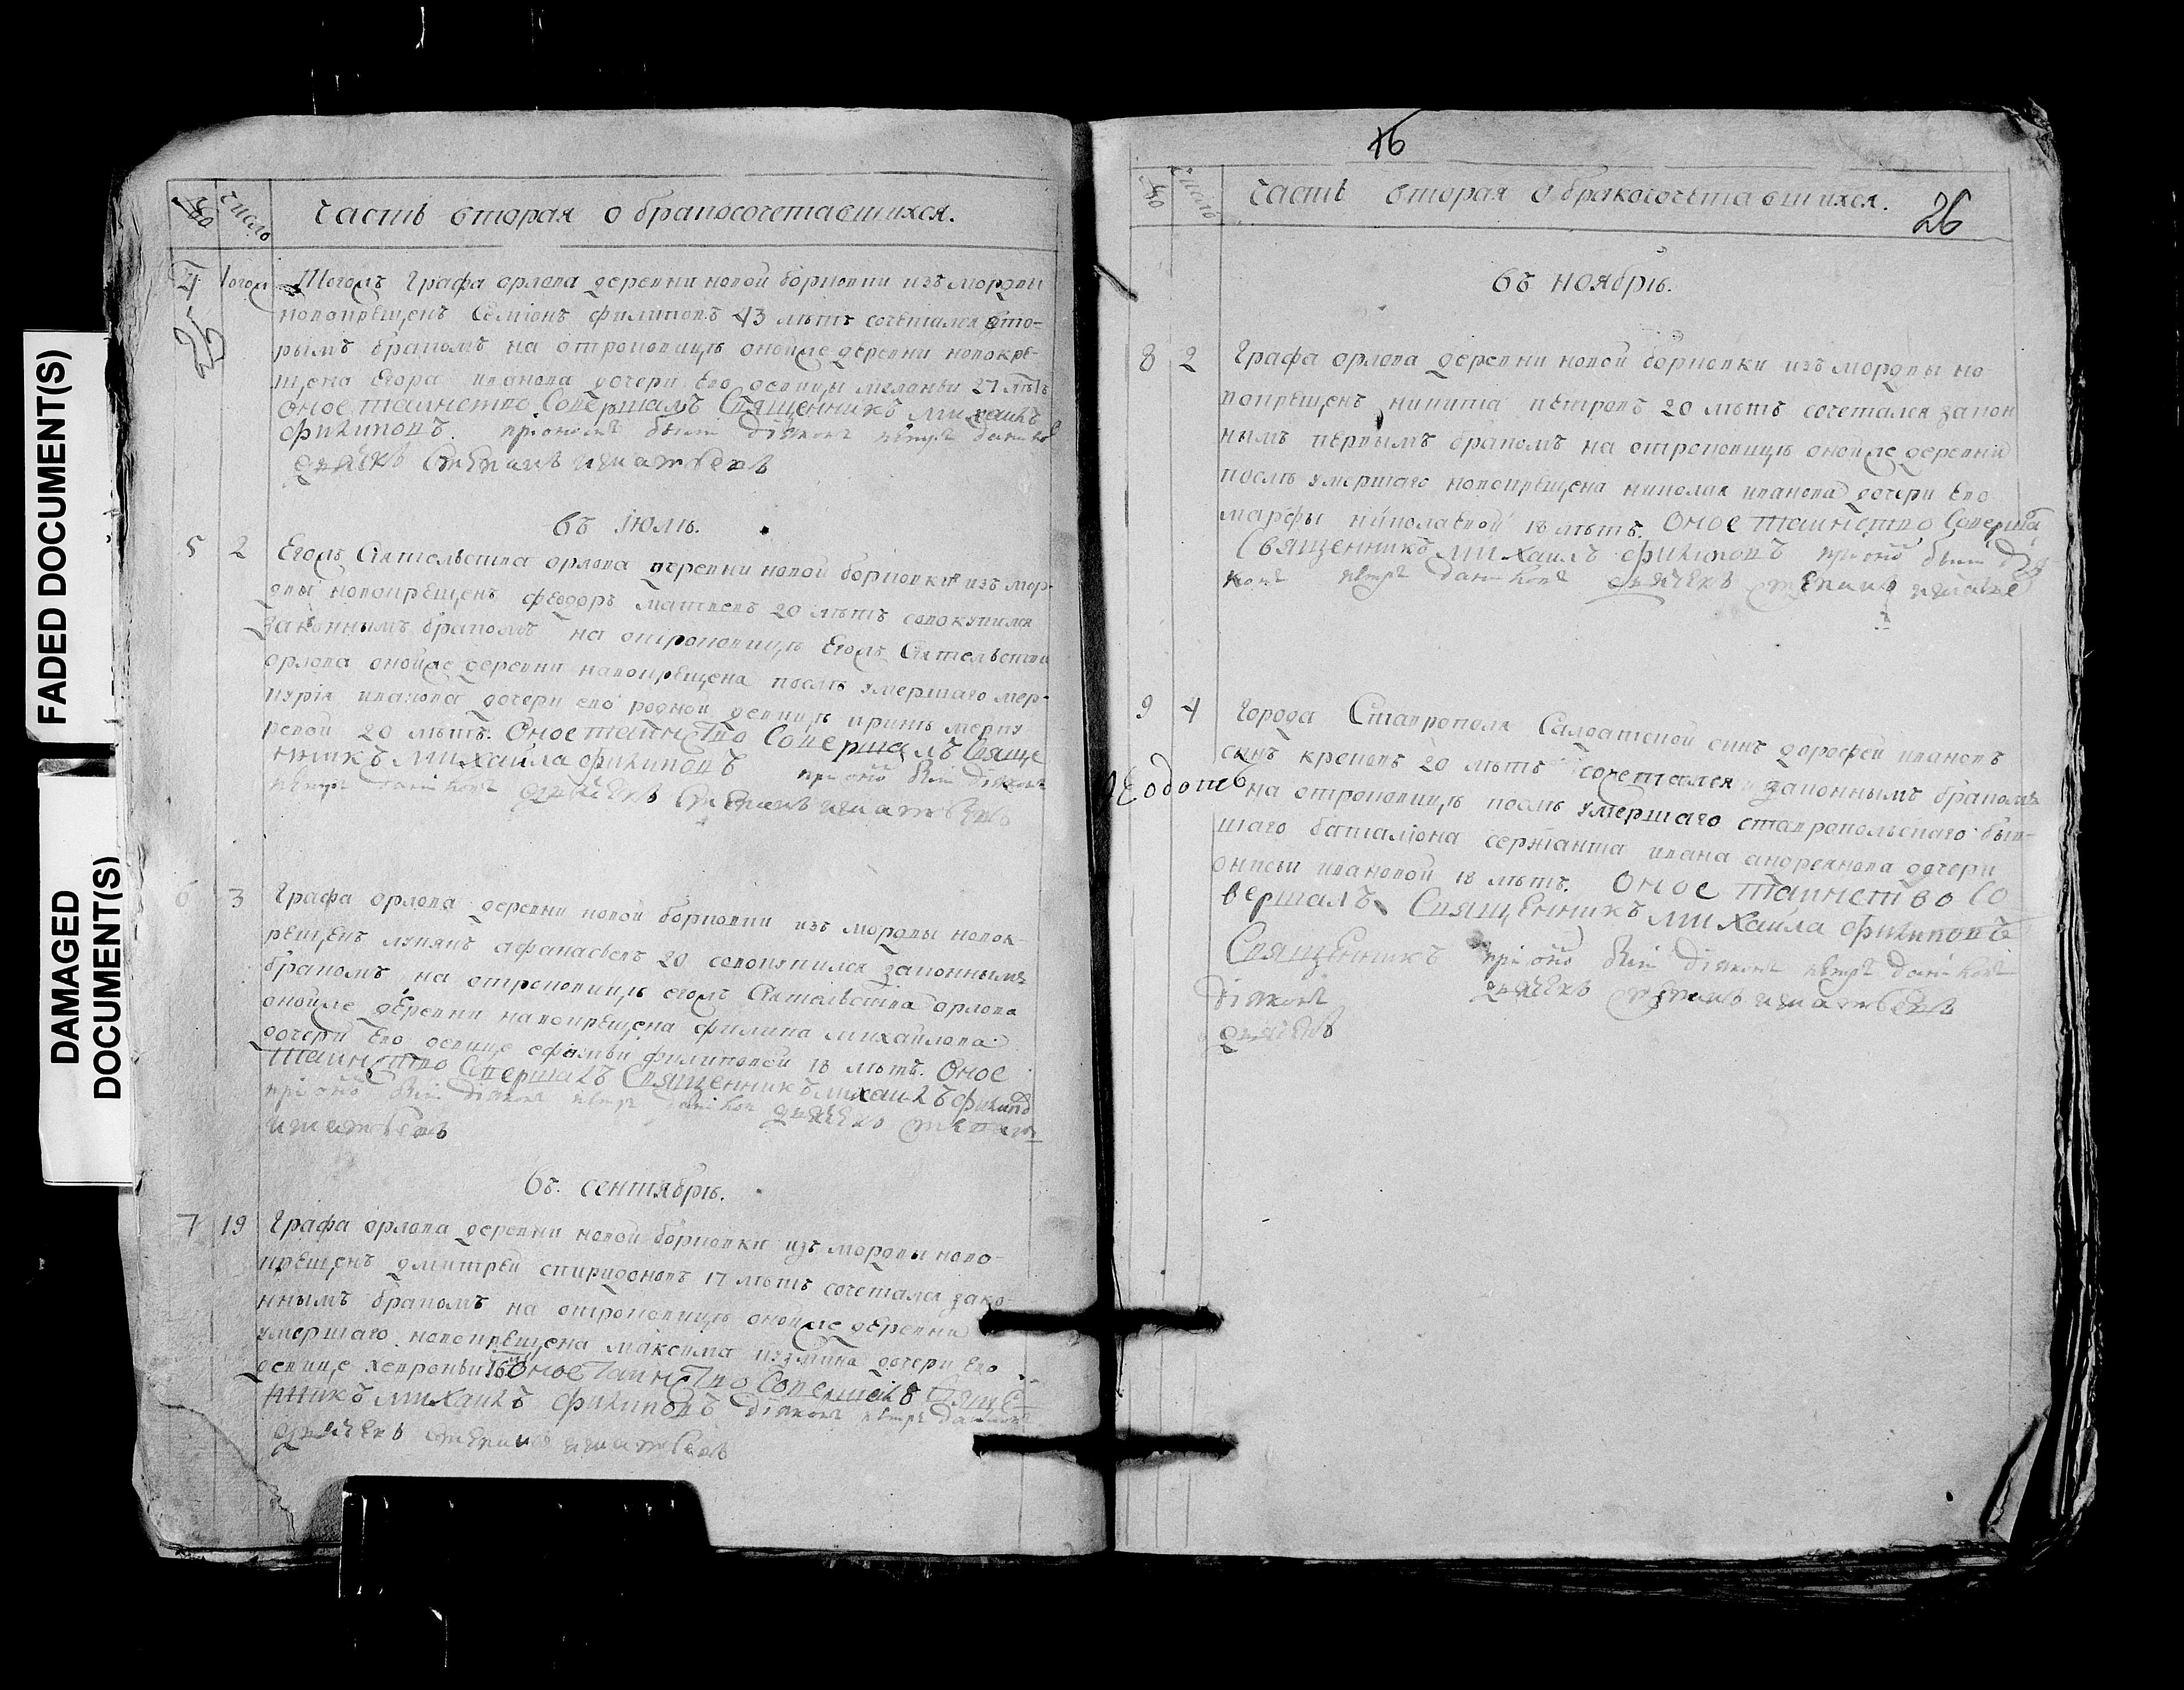 FADED DOCUMENT(S)
DAMAGED
DOCUMENT(S)
число
часть вторая о бракосочетавшихся.
4
25
тогож Тогожъ Графа орлова деревни новой борковки изъ мордвы
новокрещенъ Семіонъ филиповъ 43 лѣтъ сочетался вто-
рымъ бракомъ на отроковицѣ оной же деревни новокре-
щена Егора иванова дочери Ево девицы меланьи 27 лѣтъ
Оное таинство Совершалъ Священникъ михаилъ
филиповъ. при ономъ были діяконъ петръ
дьячекъ Степанъ игнатьевъ
въ іюлѣ.
5 2 Егожъ Сіятельства орлова деревни новой борковки изъ мор-
двы новокрещенъ феодоръ матвеевъ 20 лѣтъ совокупился
законнымъ бракомъ на отроковицѣ Егожъ Сіятельства
орлова оной же деревни новокрещена послѣ умершаго мер-
курія иванова дочери ево родной девицы мерку
ревой 20 лѣтъ. Оное таинство Совершалъ Свяще
нникъ михайла филиповъ при оно были діяконъ
петръ дьячекъ Степанъ игнатьевъ
6 3 Графа орлова деревни новой борковки изъ мордвы новок-
рещенъ лукянъ афанасьевъ 20 совокупился законнымъ
бракомъ на отроковицѣ егожъ Сіятельства орлова
оной же деревни новокрещена филипа михайлова
дочери Ево девице филиповой 18 лѣтъ. Оное
таинство Совершалъ Священникъ михаилъ филипо
при оно были діяконъ петръ дьячекъ степанъ
игнатьевъ
въ сентябрѣ.
7 19 Графа орлова деревни новой борковки изъ мордвы ново-
крещенъ дмитрей спиридоновъ 17 лѣтъ сочетался зако-
ннымъ бракомъ на отроковицѣ оной же деревни
умершаго новокрещена максима кузмина дочери Ево
девице хевроньи 16 Оное Таинство Совершалъ Свяще
нникъ михаилъ филиповъ діяконъ петръ
дьячекъ степанъ игнатьевъ
16
число
часть вторая о бракосочетавшихся.
26
въ ноябрѣ.
8 2 Графа орлова деревни новой борковки изъ мордвы но
вокрещенъ никита петровъ 20 лѣтъ сочетался закон
нымъ первымъ бракомъ на отроковицѣ оной же деревни
послѣ умершаго новокрещена николая иванова дочери Ево
марфы николаевой 18 лѣтъ. Оное таинство Соверша
Священникъ михаилъ филиповъ при оно были дія
конъ петръ дьячекъ степанъ игнатье
9 4 Города Ставрополя Салдатской сынъ дорофей ивановъ
сынъ 20 лѣтъ сочетался законнымъ бракомъ
на отроковицѣ послѣ умершаго ставропольскаго быв-
шаго баталіона сержанта ивана андреянова дочери
ивановой 18 лѣтъ. Оное таинство Со
вершалъ Священникъ михайла филиповъ
Священникъ при оно были діяконъ петръ
діяконъ дьячекъ степанъ игнатьевъ
дьячекъ